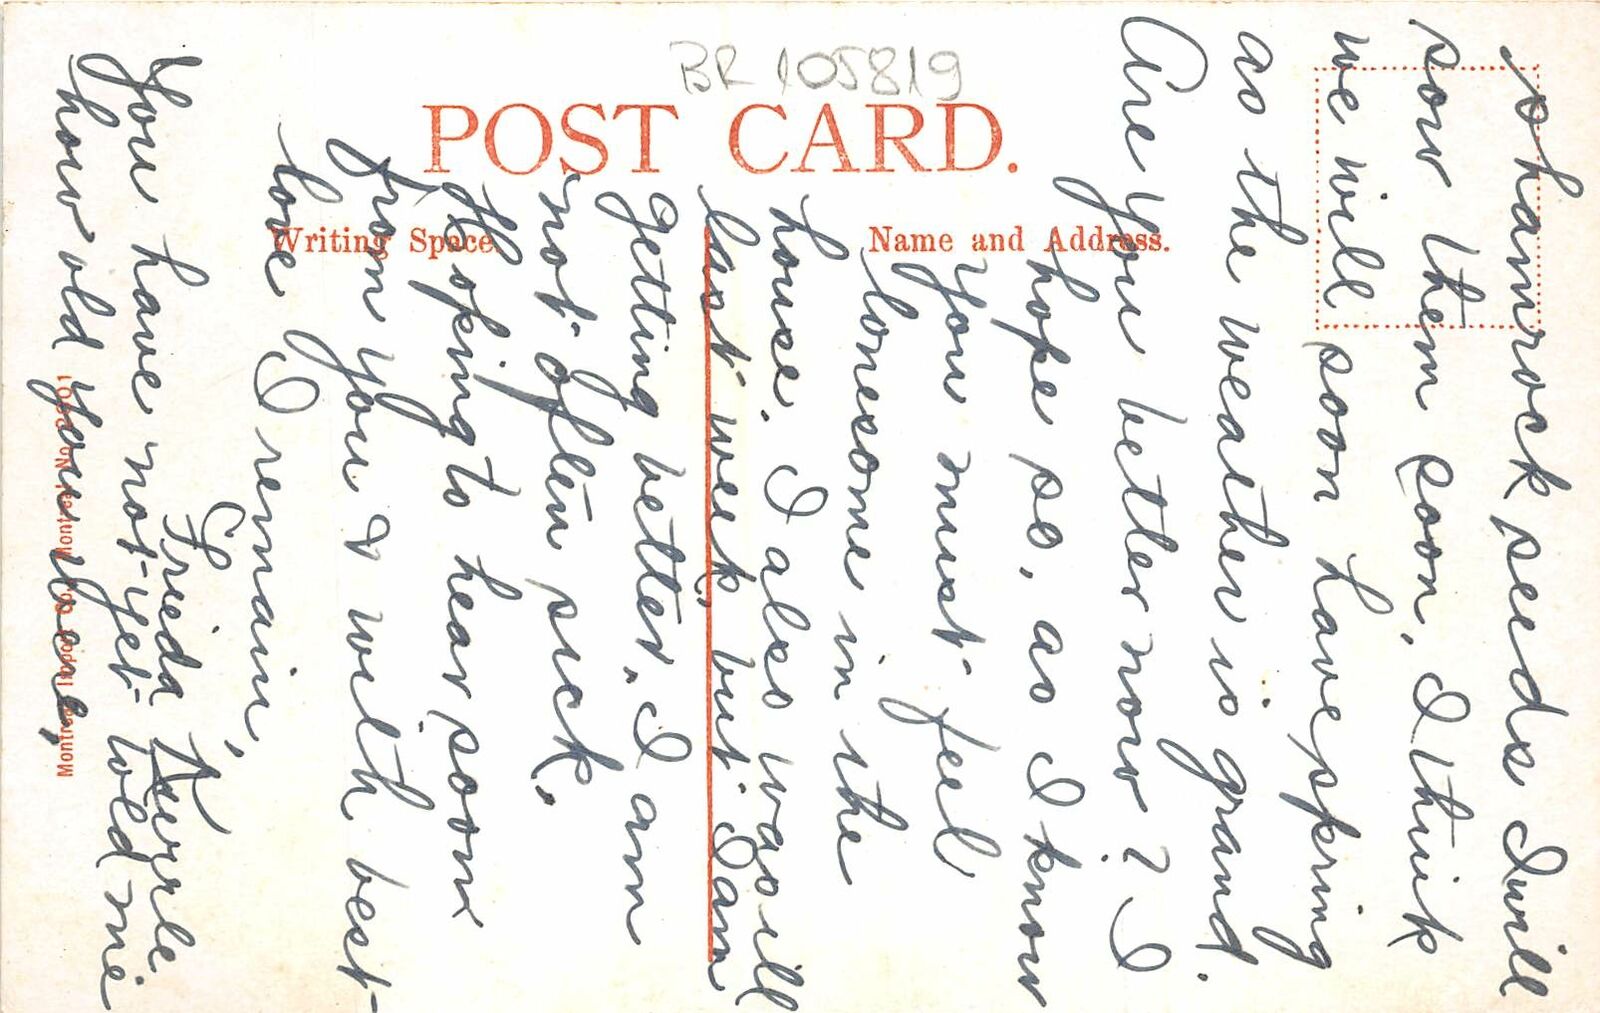 BR 105819
POST CARD.
Writing Space.
Name and Address.
shamrock seeds I will
sow them soon. I think
we will soon have spring
as the weather is grand.
Are you better now? I
hope so, as I know
you must feel
lonesome in the
house. I also was ill
last week, but I am
getting better. I am
not often sick.
Hoping to hear soon
from you & with best
love I remain,
Frieda
You have not yet told me
how old you were,
Montreal Import Co., Montreal. No.